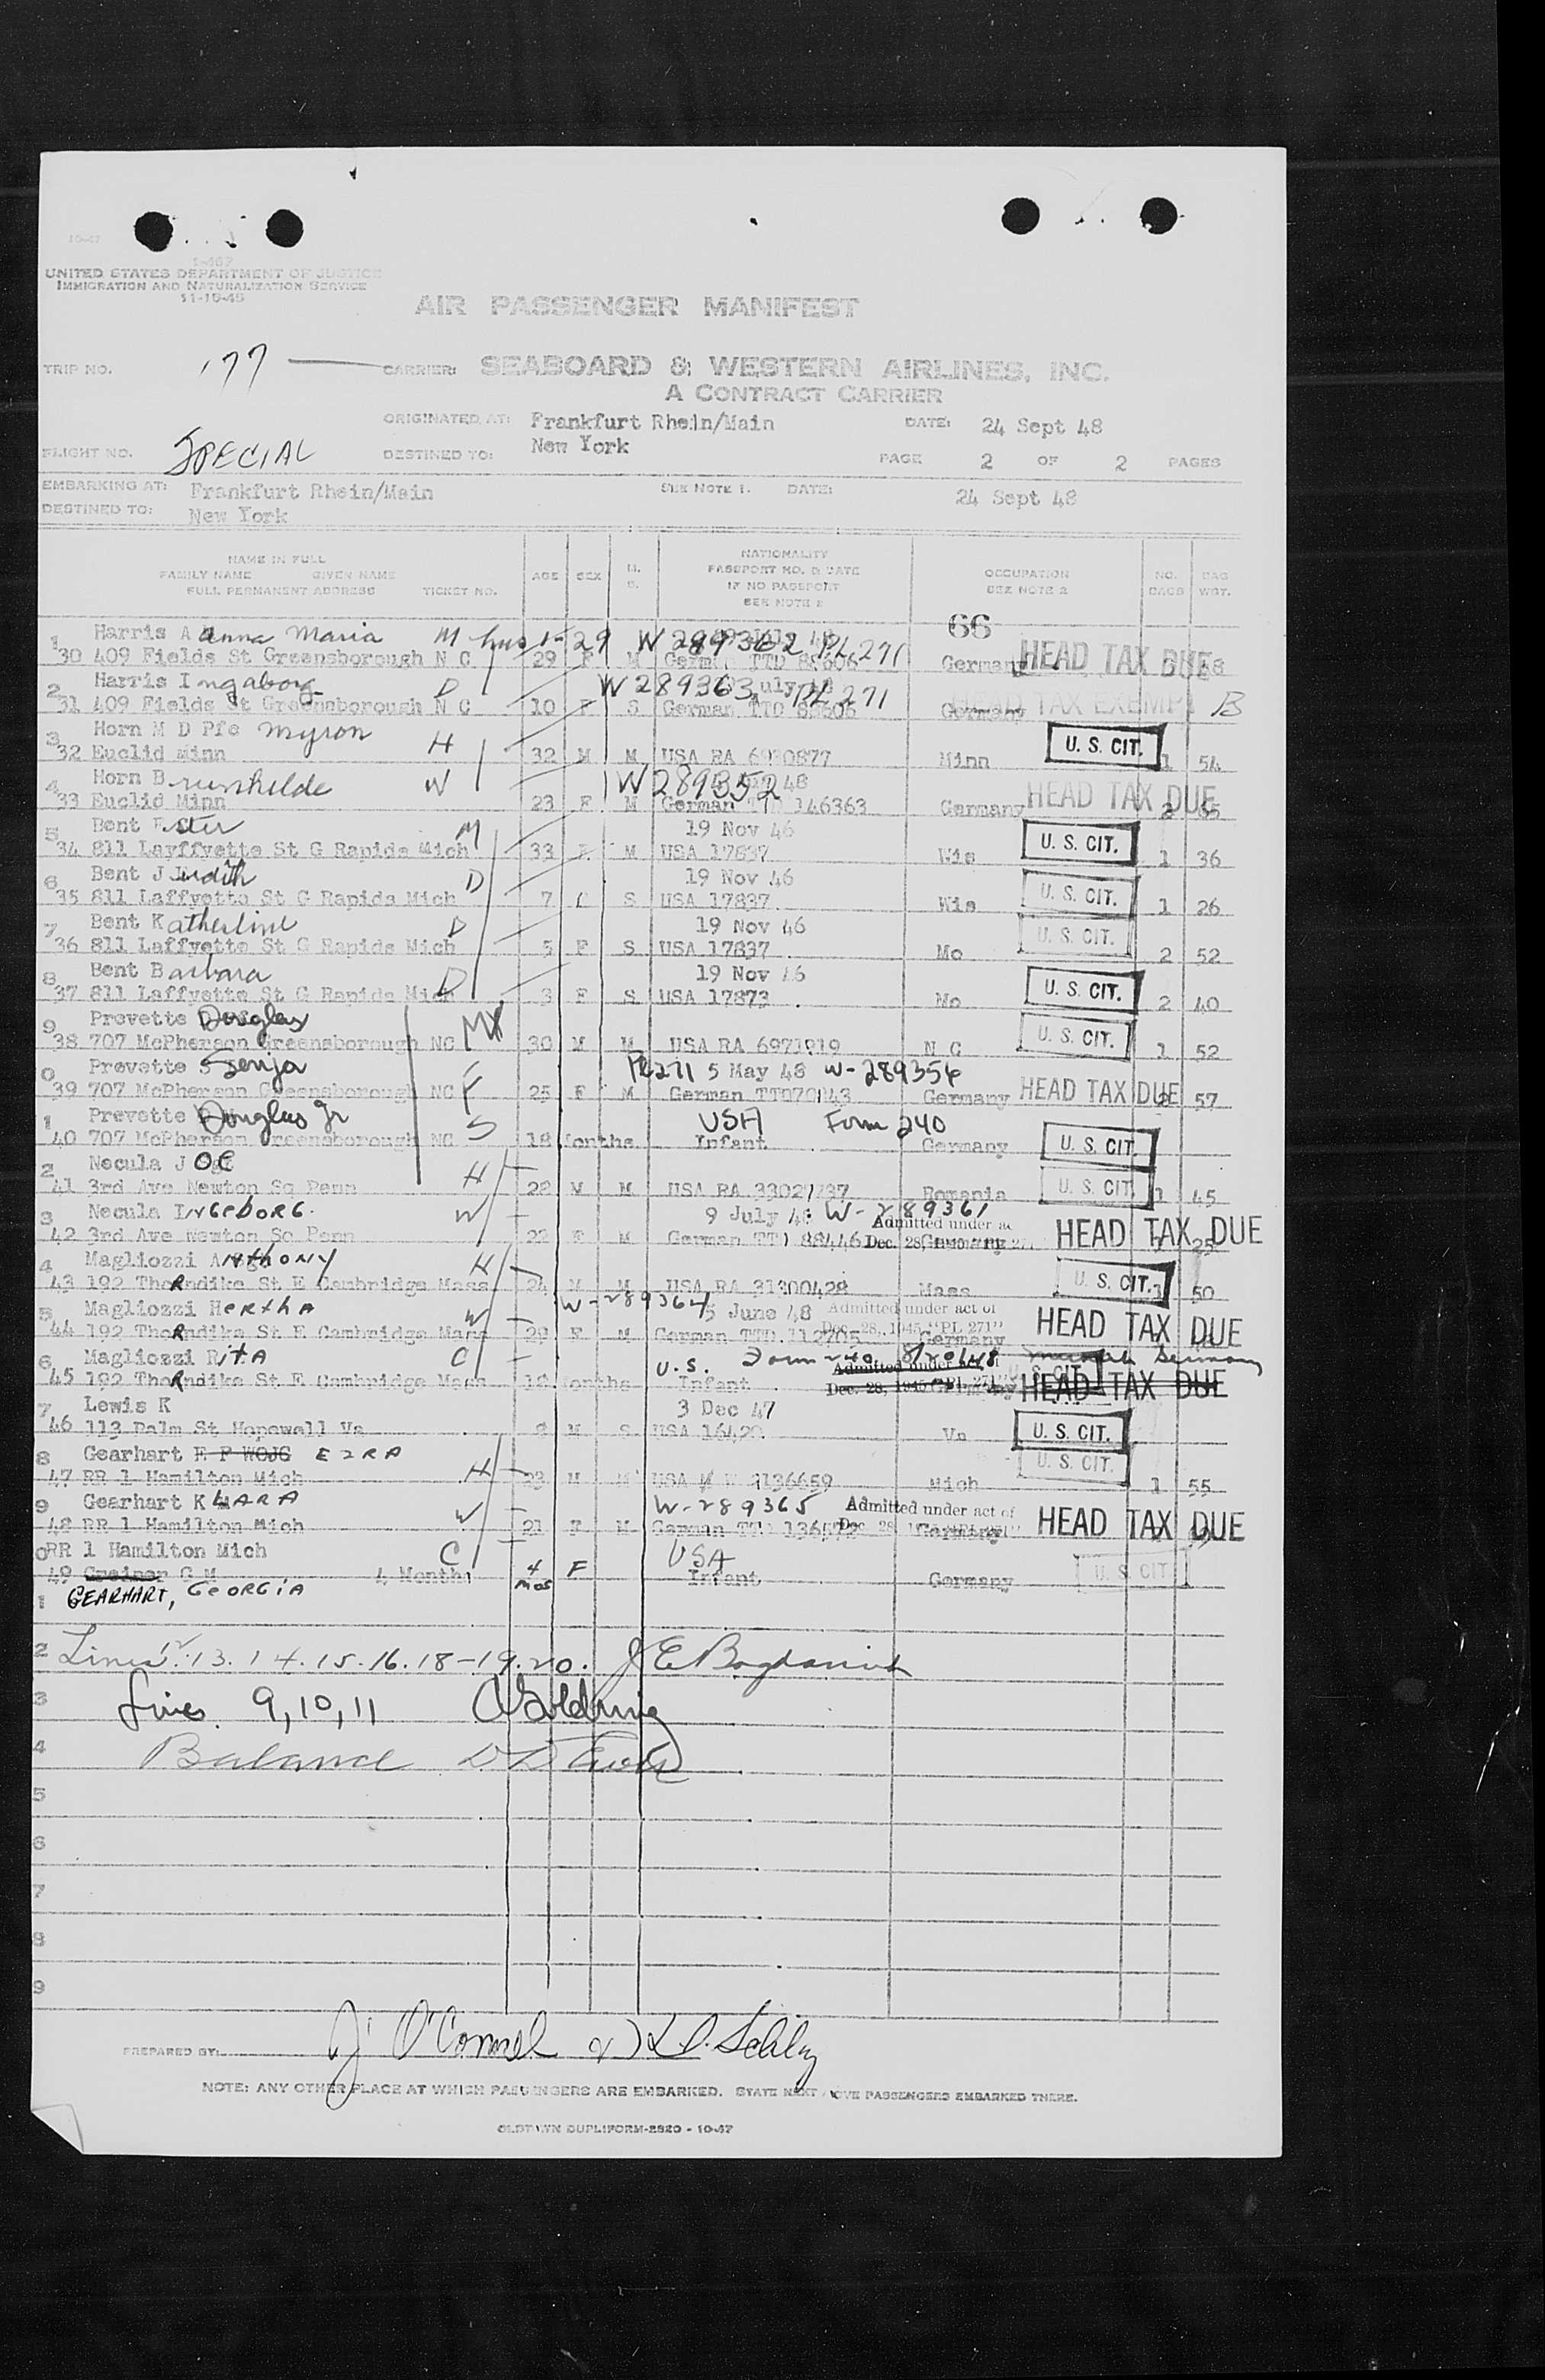 10-47
I-467
UNITED STATES DEPARTMENT OF JUSTICE
IMMIGRATION AND NATURALIZATION SERVICE
11-15-45
AIR PASSENGER MANIFEST
TRIP NO. 177 CARRIER: SEABOARD & WESTERN AIRLINES, INC.
A CONTRACT CARRIER
ORIGINATED AT: Frankfurt Rhein/Main DATE: 24 Sept 48
FLIGHT NO. SPECIAL DESTINED TO: New York PAGE 2 OF 2 PAGES
EMBARKING AT: Frankfurt Rhein/Main SEE NOTE 1. DATE: 24 Sept 48
DESTINED TO: New York
NAME IN FULL
FAMILY NAME GIVEN NAME
FULL PERMANENT ADDRESS TICKET NO.
AGE SEX M. S.
NATIONALITY
PASSPORT NO. & DATE
IF NO PASSPORT
SEE NOTE 2
OCCUPATION
SEE NOTE 2
NO. BAGS
BAG WGT.
66
1 Harris A Anna Maria M W 289362 PL 271
30 409 Fields St Greensborough N C 29 F M German TTD 88606 Germany HEAD TAX DUE
2 Harris Ingaborg D W 289363 July 48 PL 271
31 409 Fields St Greensborough N C 10 F S German TTD 88606 Germany HEAD TAX EXEMPT B
3 Horn M D Pfc Myron H
32 Euclid Minn 32 M M USA RA 6930877 Minn U. S. CIT. 1 54
4 Horn Brunhelde W W 289352 48
33 Euclid Minn 23 F M German TTD 146363 Germany HEAD TAX DUE
5 Bent Ester M 19 Nov 46
34 811 Layffyette St G Rapids Mich 33 F M USA 17837 Wis U. S. CIT. 1 36
6 Bent J Judith D 19 Nov 46
35 811 Laffyette St G Rapids Mich 7 S USA 17837 Wis U. S. CIT. 1 26
7 Bent Katherine D 19 Nov 46
36 811 Laffyette St G Rapids Mich 5 F S USA 17837 Mo U. S. CIT. 2 52
8 Bent Barbara D 19 Nov 46
37 811 Laffyette St G Rapids Mich 3 F S USA 17873 Mo U. S. CIT. 2 40
9 Prevette Douglas
38 707 McPherson Greensborough NC 30 M M USA RA 6971919 N C U. S. CIT. 1 52
0 Prevette Senja PL271 5 May 48 W-289356
39 707 McPherson Greensborough NC F 25 F M German Germany HEAD TAX DUE 57
1 Prevette Douglas Jr USA Form 240
40 707 McPherson Greensborough NC S 18 Months Infant Germany U. S. CIT.
2 Necula J H
41 3rd Ave Newton Sq Penn 22 M M USA RA Romania U. S. CIT. 1 45
3 Necula INGeborG. W 9 July 48 W-289361 Admitted under act
42 3rd Ave Newton Sq Penn 22 F M German TTD 88446 Dec. 28, Germany HEAD TAX DUE
4 Magliozzi ANthony H
43 192 ThoRndike St E Cambridge Mass 24 M M USA RA 31300428 Mass U. S. CIT. 50
5 Magliozzi HerthA W W-289364 5 June 48 Admitted under act of
44 192 ThoRndike St E Cambridge Mass 29 F M German TTD 112705 Dec. 28, 1945 "PL 271" Germany HEAD TAX DUE
6 Magliozzi RitA C U.S. Form 240 8/20/48 Germany Admitted under act of
45 192 ThoRndike St E Cambridge Mass 18 Months Infant Dec. 28, 1945 "PL 271" U. S. CIT. HEAD TAX DUE
7 Lewis R 3 Dec 47
46 113 Palm St Hopewell Va M S USA 16420 Va U. S. CIT.
8 Gearhart E P WOJG EZRA H
47 RR 1 Hamilton Mich 23 M M USA 2136659 Mich U. S. CIT. 1 55
9 Gearhart KLARA W W-289365 Admitted under act of
48 RR 1 Hamilton Mich 21 F M German TTD Dec. 28, Germany HEAD TAX DUE
0 RR 1 Hamilton Mich C USA
49 Greiner G M 4 Months 4 mos F Infant Germany U. S. CIT
1 GEARHART, GeORGiA
2 Lines 12. 13. 14. 15. 16. 18-19. 20. J E Bogdanich
3 Lines 9, 10, 11
4 Balance
5
6
7
8
9
PREPARED BY: J O'Connel
NOTE: ANY OTHER PLACE AT WHICH PASSENGERS ARE EMBARKED. STATE NEXT ABOVE PASSENGERS EMBARKED THERE.
OLDTOWN DUPLIFORM-2820 - 10-47